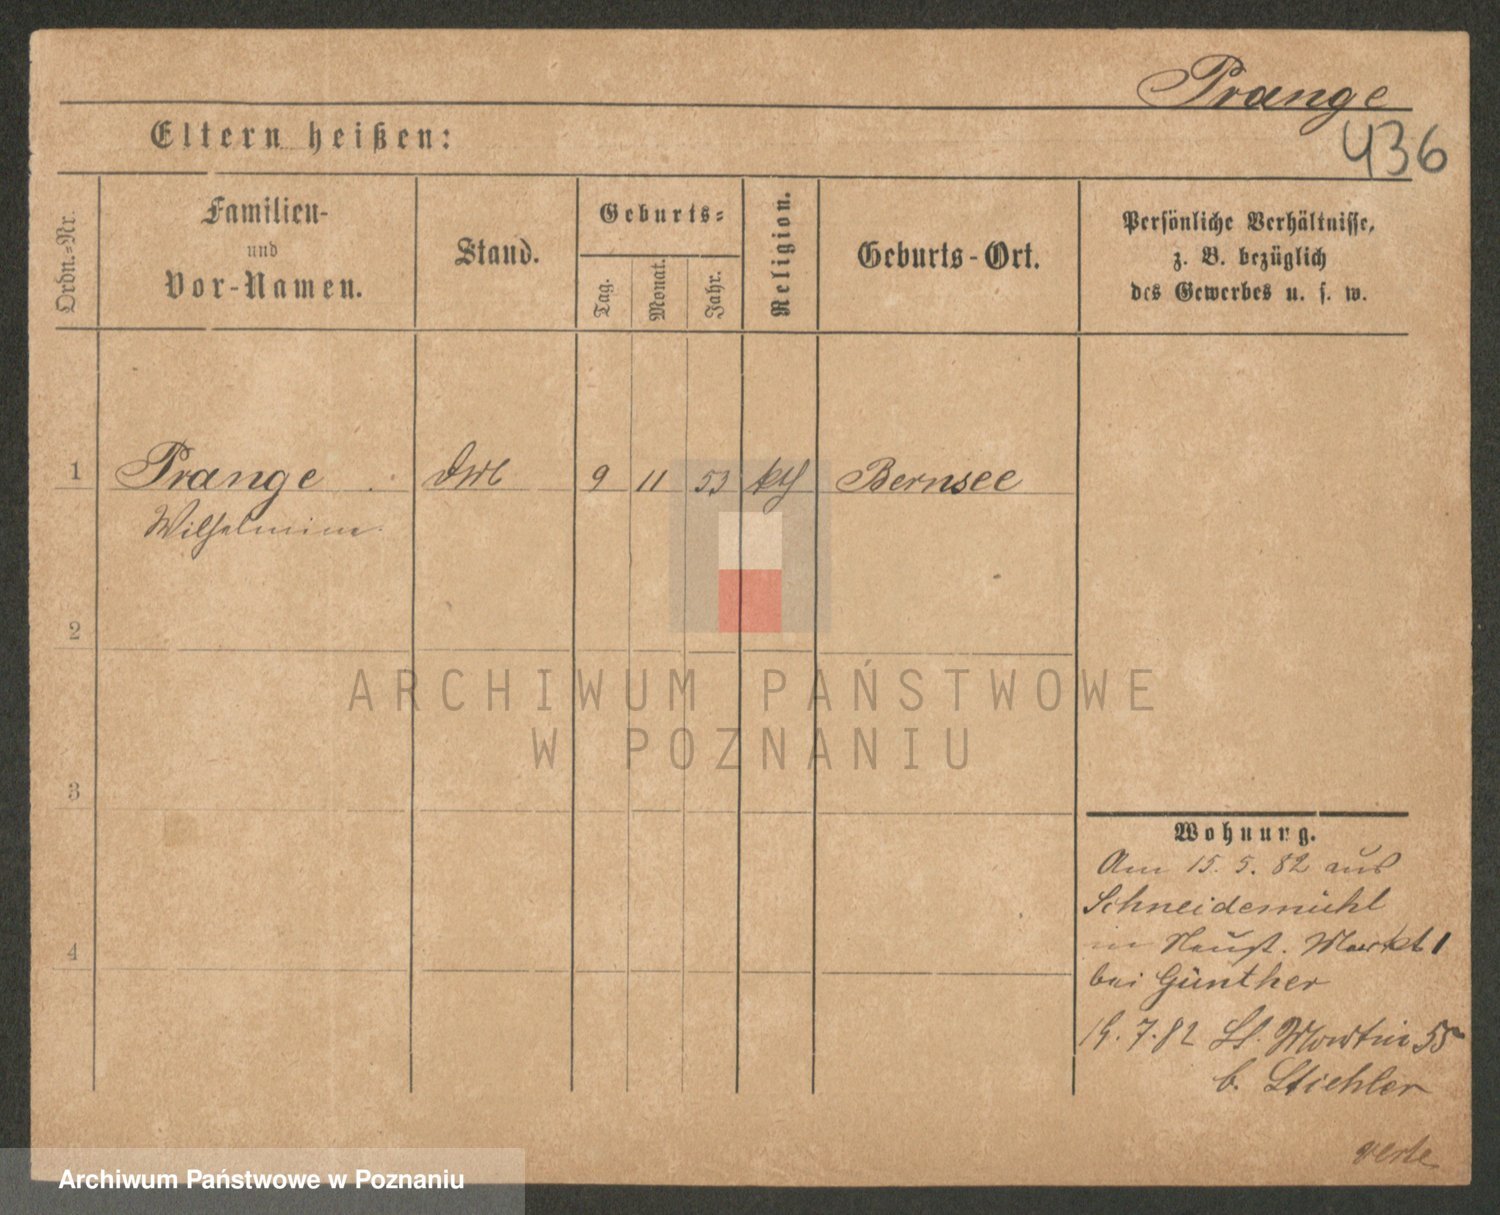 Prange
436
Eltern heißen:
Ordn.-Nr.
Familien-
und
Vor-Namen.
Stand.
Geburts-
Tag.
Monat.
Jahr.
Religion.
Geburts-Ort.
Persönliche Verhältnisse,
z. B. bezüglich
des Gewerbes u. s. w.
1 Prange 9 11 53 kth Bernsee
Wilhelmine
2
ARCHIWUM PAŃSTWOWE
W POZNANIU
3
Wohnung.
Am 15. 5. 82 aus
Schneidemühl
in Markt 1
4
bei Günther
7. 82 St. Martin 55
b. Stiehler
verte
Archiwum Państwowe w Poznaniu